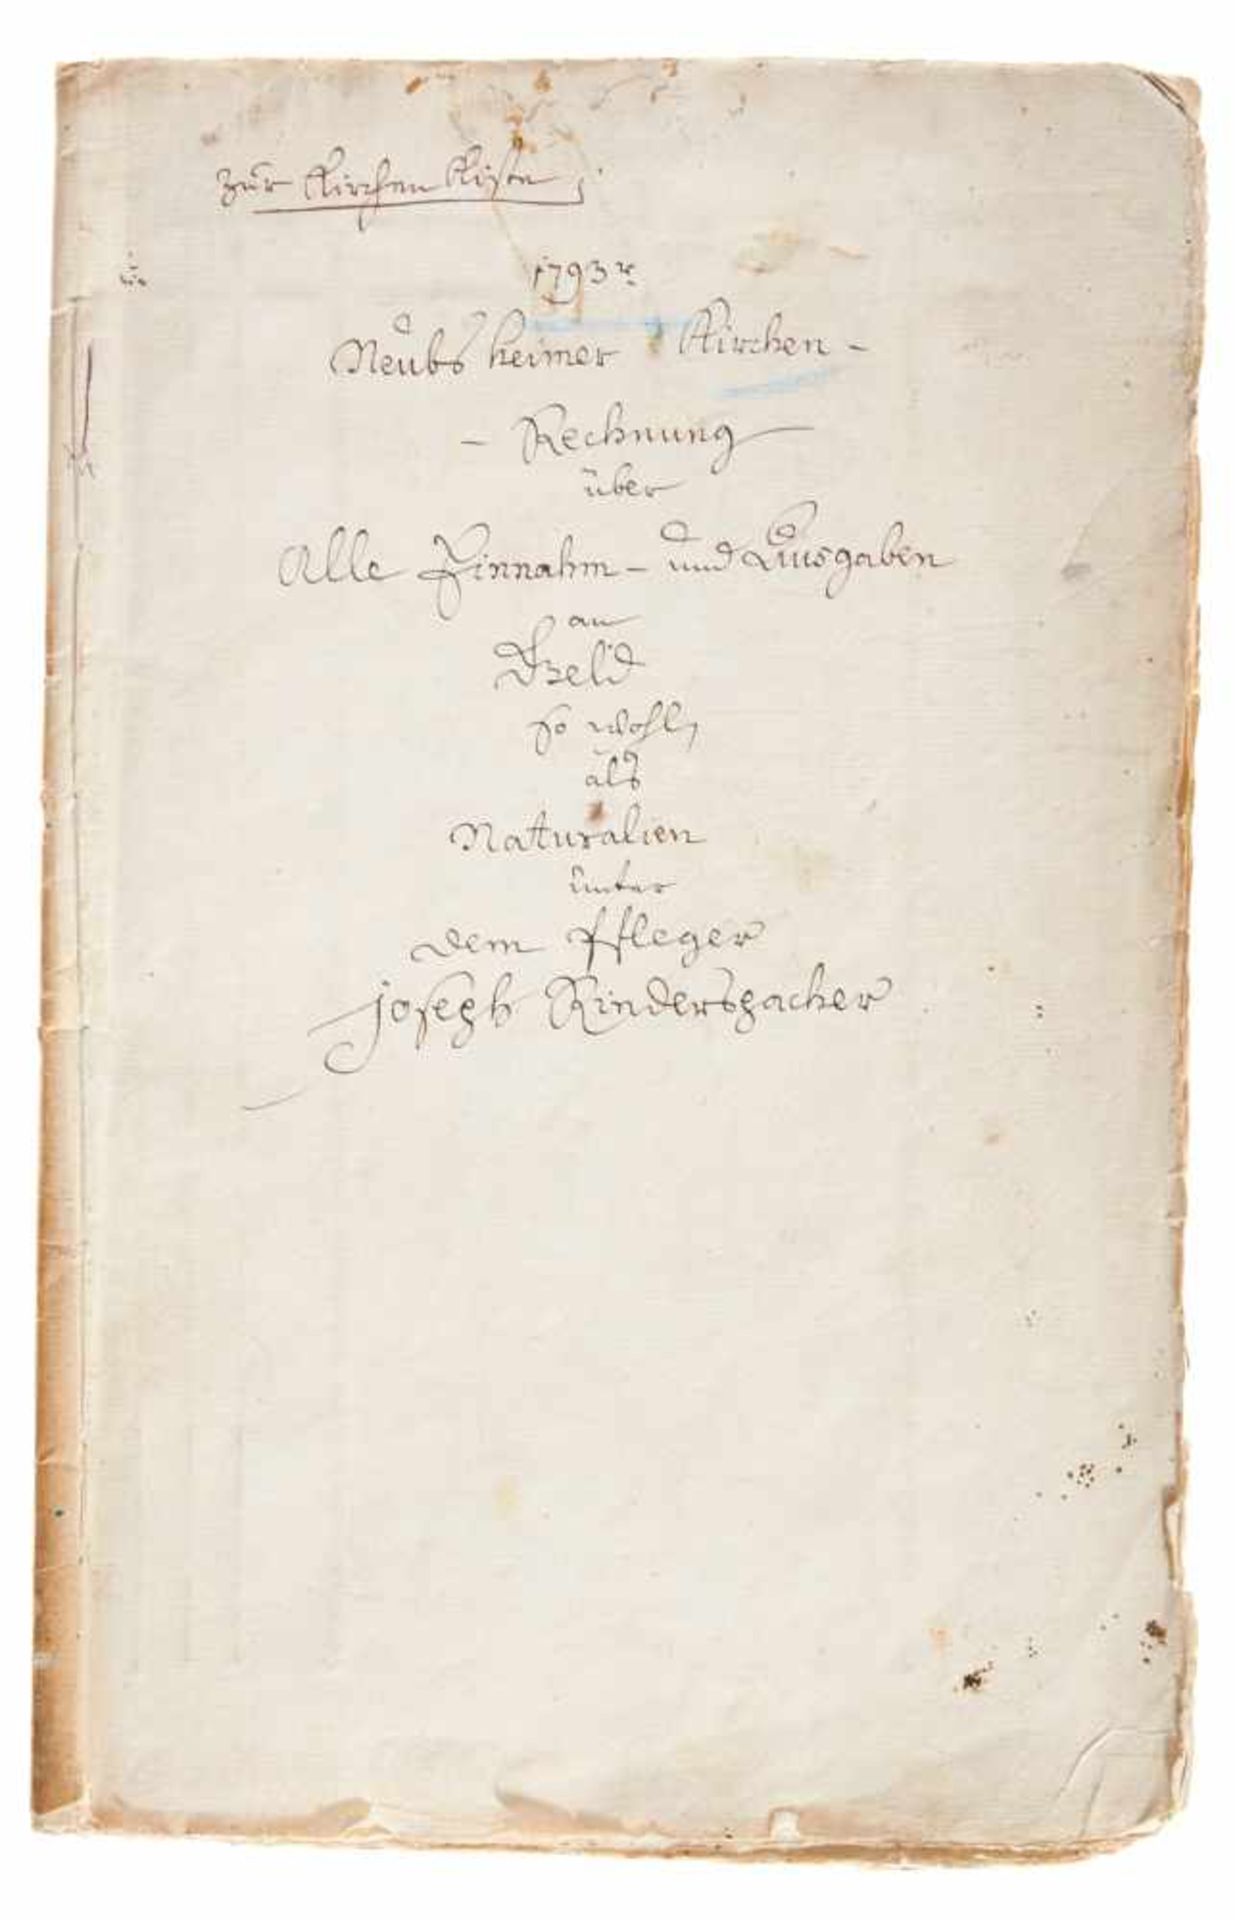 zur Kirchen Kiste
1793r.
Neubsheimer Kirchen-
- Rechnung
über
Alle Einnahm- und Ausgaben
an
Geld
so wohl,
als
Naturalien
unter
dem Pfleger
joseph Kinderspacher